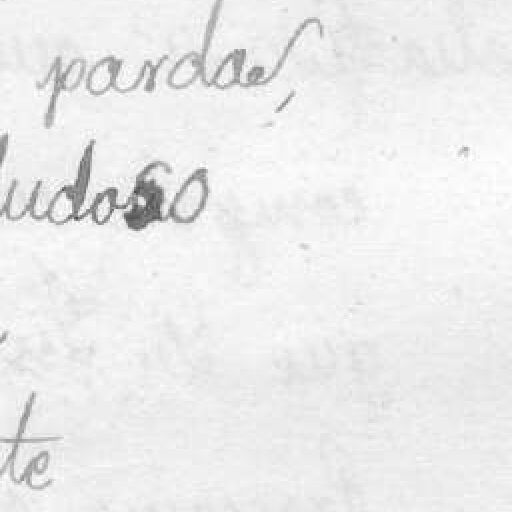 pardas,
ludoso
te